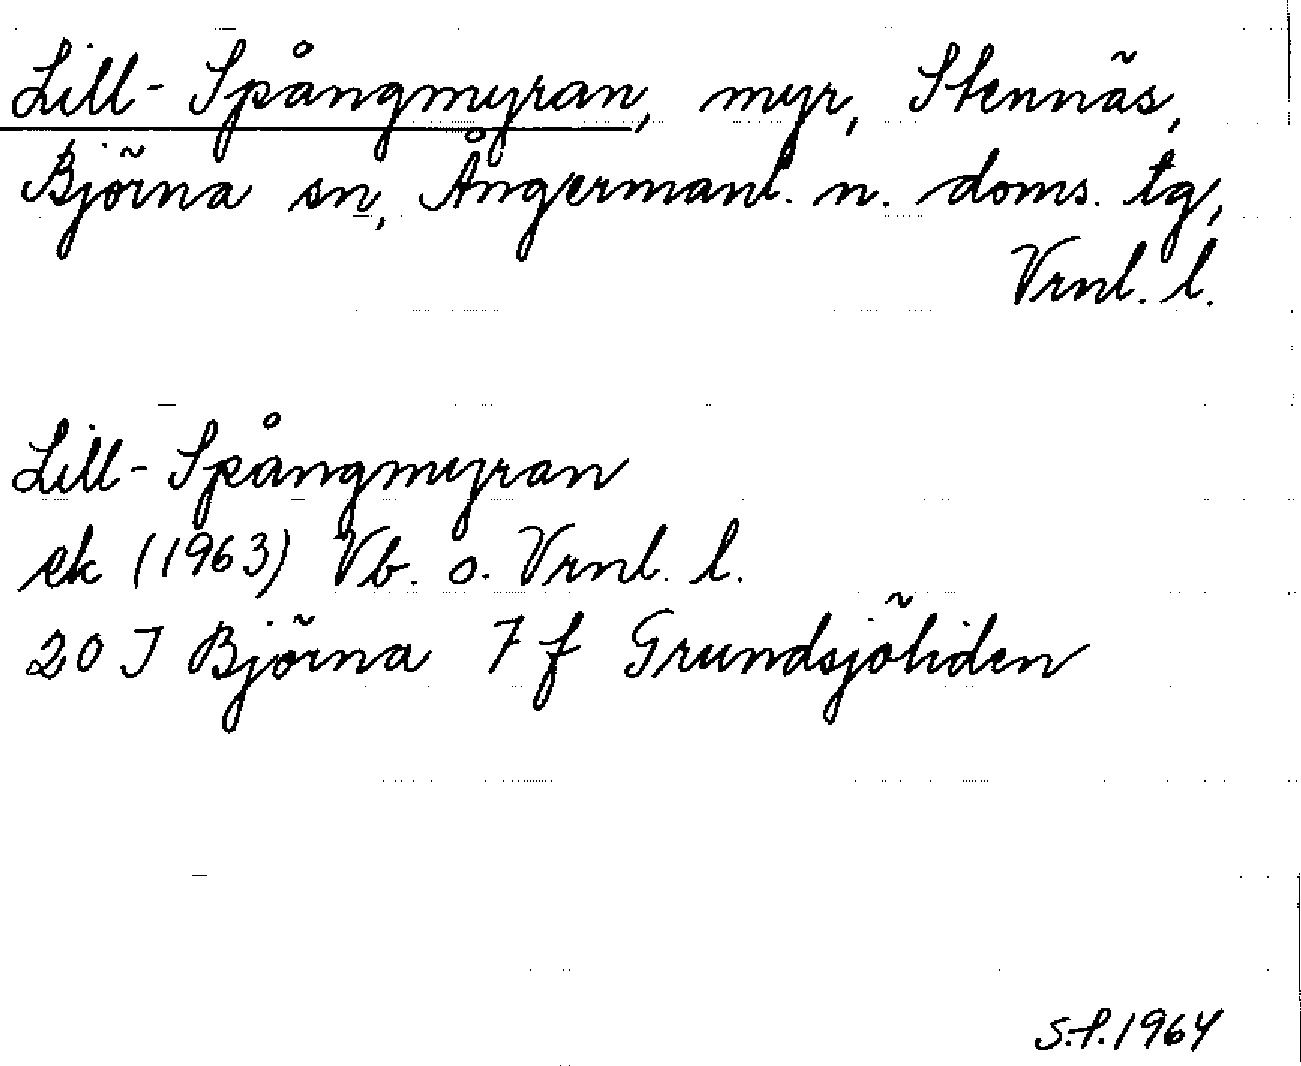 Lill-Spångmyran, myr, Stennäs,
Björna sn, Ångermanl. n. doms. tg,
Vrnl. l.
Lill-Spångmyran
ek (1963) Vb. o. Vrnl. l.
20 I Björna 7 f Grundsjöliden
S.P. 1964